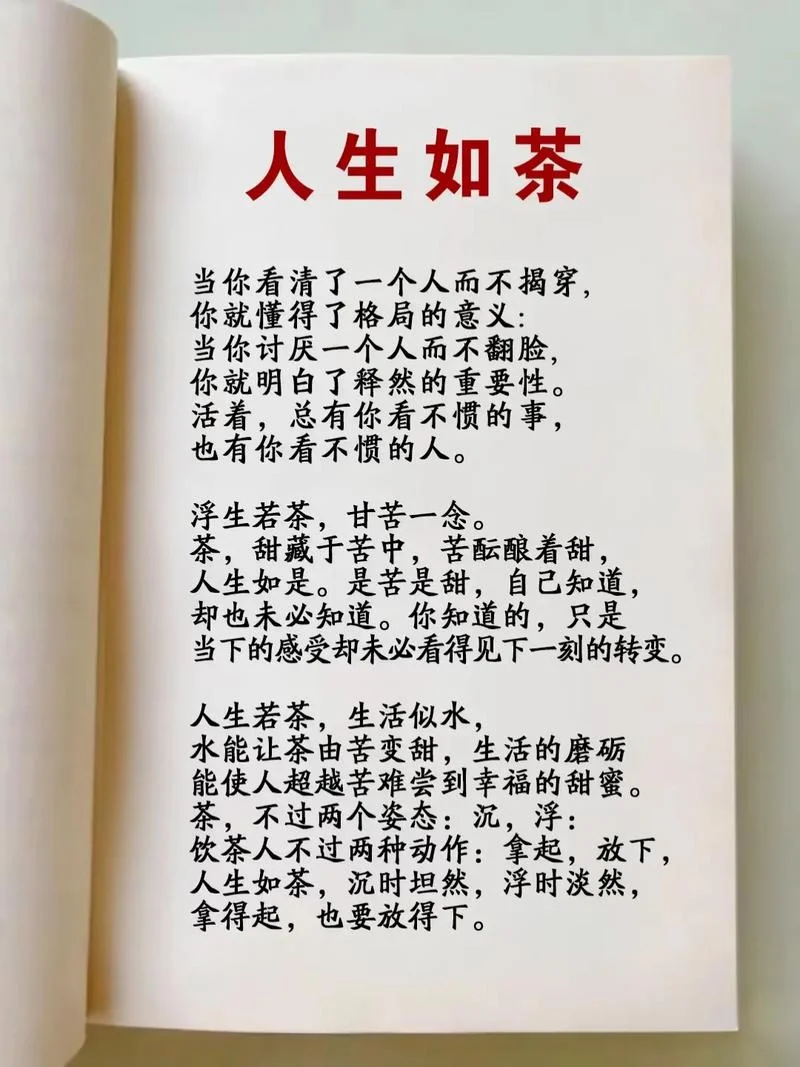 人生如茶
当你看清了一个人而不揭穿，
你就懂得了格局的意义：
当你讨厌一个人而不翻脸，
你就明白了释然的重要性。
活着，总有你看不惯的事，
也有你看不惯的人。
浮生若茶，甘苦一念。
茶，甜藏于苦中，苦酝酿着甜，
人生如是。是苦是甜，自己知道，
却也未必知道。你知道的，只是
当下的感受却未必看得见下一刻的转变。
人生若茶，生活似水，
水能让茶由苦变甜，生活的磨砺
能使人超越苦难尝到幸福的甜蜜。
茶，不过两个姿态：沉，浮：
饮茶人不过两种动作：拿起，放下，
人生如茶，沉时坦然，浮时淡然，
拿得起，也要放得下。